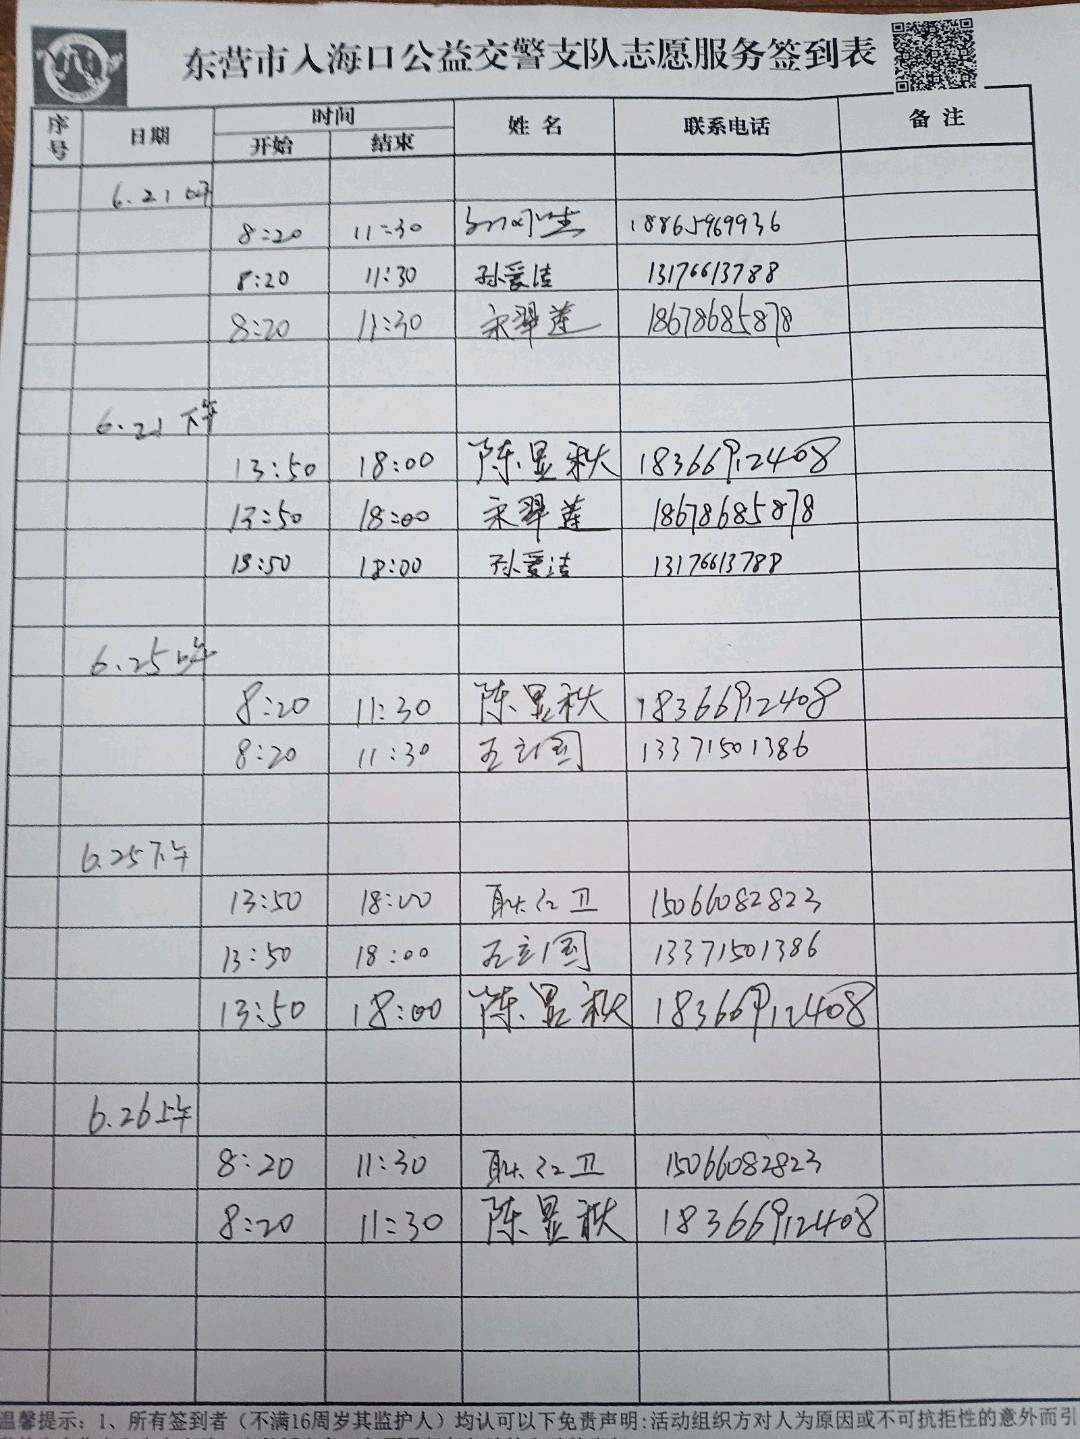 东营市入海口公益交警支队志愿服务签到表
序号 日期 时间 姓名 联系电话 备注
开始 结束
6.21 上午
8:20 11:30 18865969936
8:20 11:30 孙爱洁 13176613788
8:20 11:30 宋翠莲 18678685878
6.21 下午
13:50 18:00 陈显秋 18366912408
13:50 18:00 宋翠莲 18678685878
13:50 18:00 孙爱洁 13176613788
6.25 上午
8:20 11:30 陈显秋 18366912408
8:20 11:30 王立国 13371501386
6.25 下午
13:50 18:00 耿红卫 15066082823
13:50 18:00 王立国 13371501386
13:50 18:00 陈显秋 18366912408
6.26 上午
8:20 11:30 耿红卫 15066082823
8:20 11:30 陈显秋 18366912408
温馨提示：1、所有签到者（不满16周岁其监护人）均认可以下免责声明:活动组织方对人为原因或不可抗拒性的意外而引